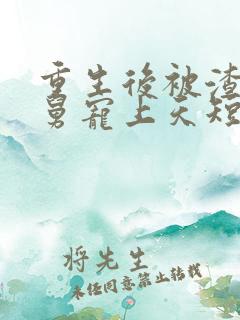 重生後被渣
舅寵上天短
将先生
未经同意禁止转载